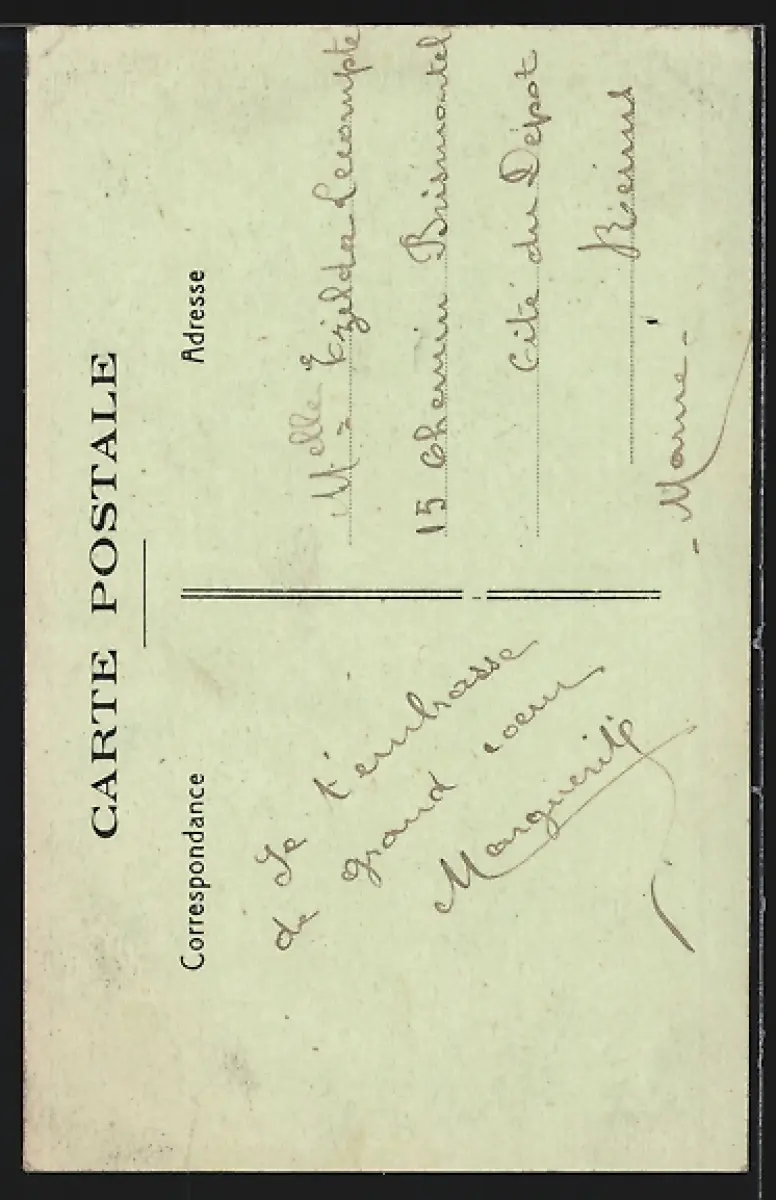 CARTE POSTALE
Correspondance
Je t'embrasse
de grand coeur
Marguerite
Adresse
Melle Ezilda Lecompte
15 Chemin Brismontel
Cité du Dépot
Reims
- Marne -